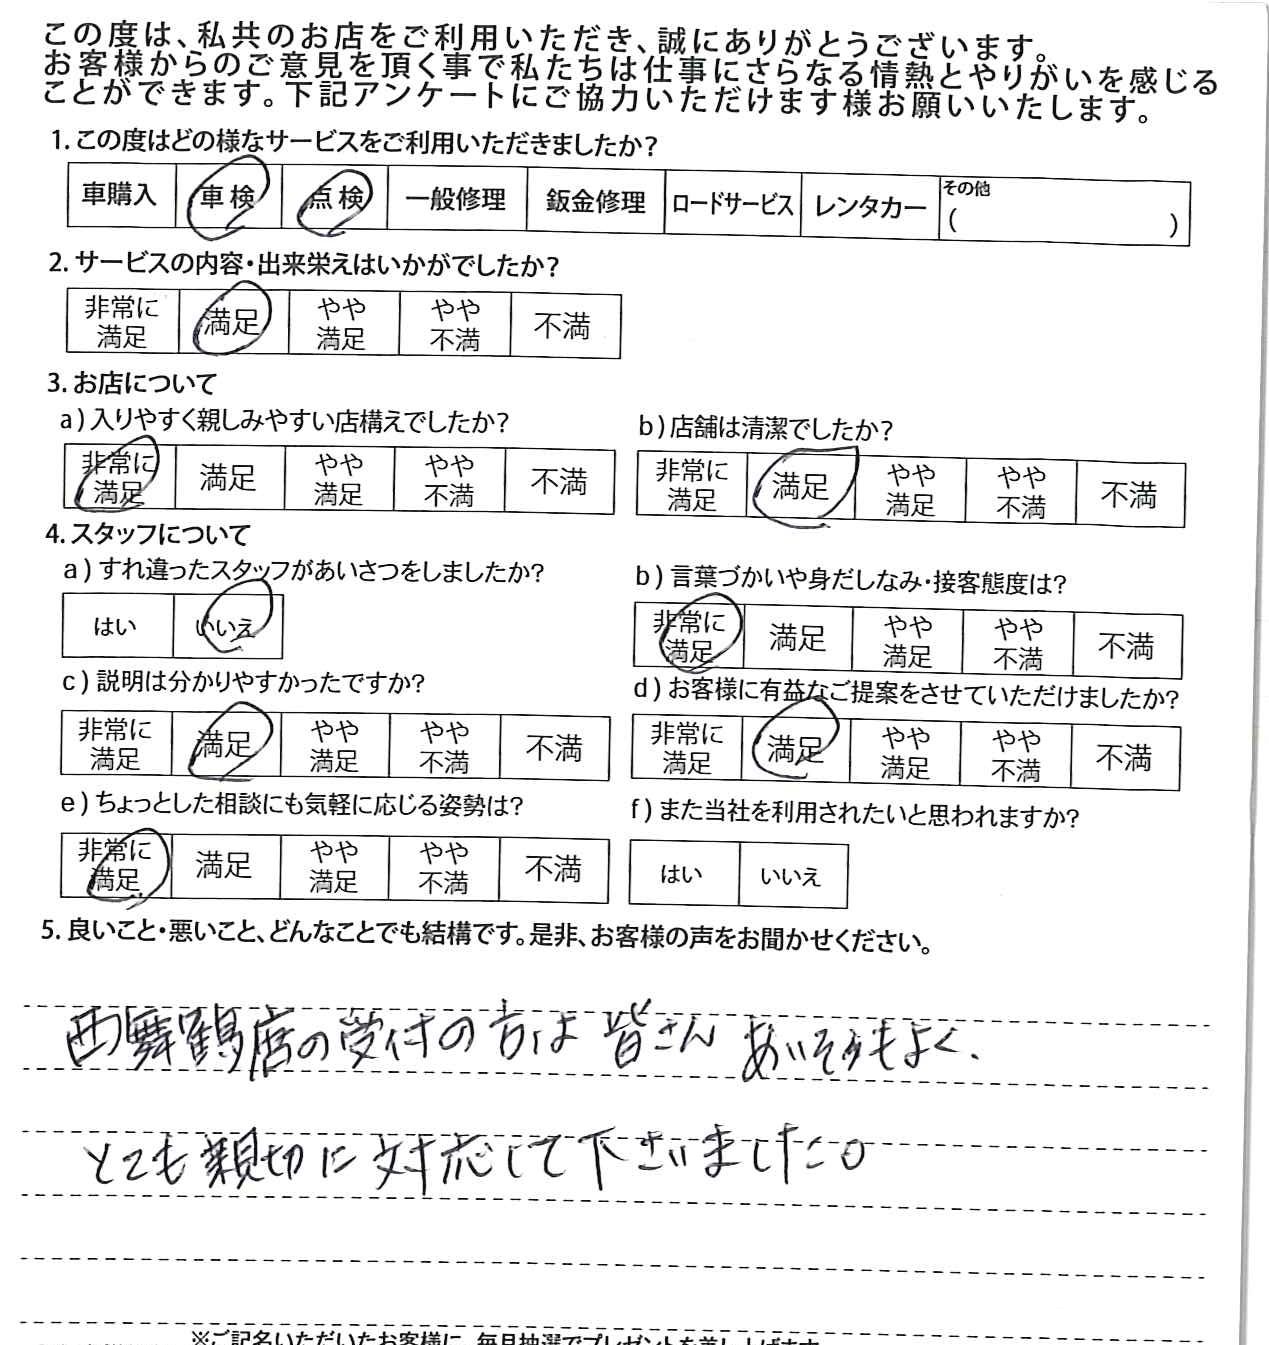 この度は、私共のお店をご利用いただき、誠にありがとうございます。
お客様からのご意見を頂く事で私たちは仕事にさらなる情熱とやりがいを感じる
ことができます。下記アンケートにご協力いただけます様お願いいたします。
1. この度はどの様なサービスをご利用いただきましたか?
車購入 車検 点検 一般修理 鈑金修理 ロードサービス レンタカー その他 ( )
2. サービスの内容・出来栄えはいかがでしたか?
非常に満足 満足 やや満足 やや不満 不満
3. お店について
a) 入りやすく親しみやすい店構えでしたか?
非常に満足 満足 やや満足 やや不満 不満
b) 店舗は清潔でしたか?
非常に満足 満足 やや満足 やや不満 不満
4. スタッフについて
a) すれ違ったスタッフがあいさつをしましたか?
はい いいえ
b) 言葉づかいや身だしなみ・接客態度は?
非常に満足 満足 やや満足 やや不満 不満
c) 説明は分かりやすかったですか?
非常に満足 満足 やや満足 やや不満 不満
d) お客様に有益なご提案をさせていただけましたか?
非常に満足 満足 やや満足 やや不満 不満
e) ちょっとした相談にも気軽に応じる姿勢は?
非常に満足 満足 やや満足 やや不満 不満
f) また当社を利用されたいと思われますか?
はい いいえ
5. 良いこと・悪いこと、どんなことでも結構です。是非、お客様の声をお聞かせください。
西舞鶴店の受付の方は皆さんあいそうもよく、
とても親切に対応して下さいました。
※ご記名いただいたお客様に、毎月抽選でプレゼントを差し上げます